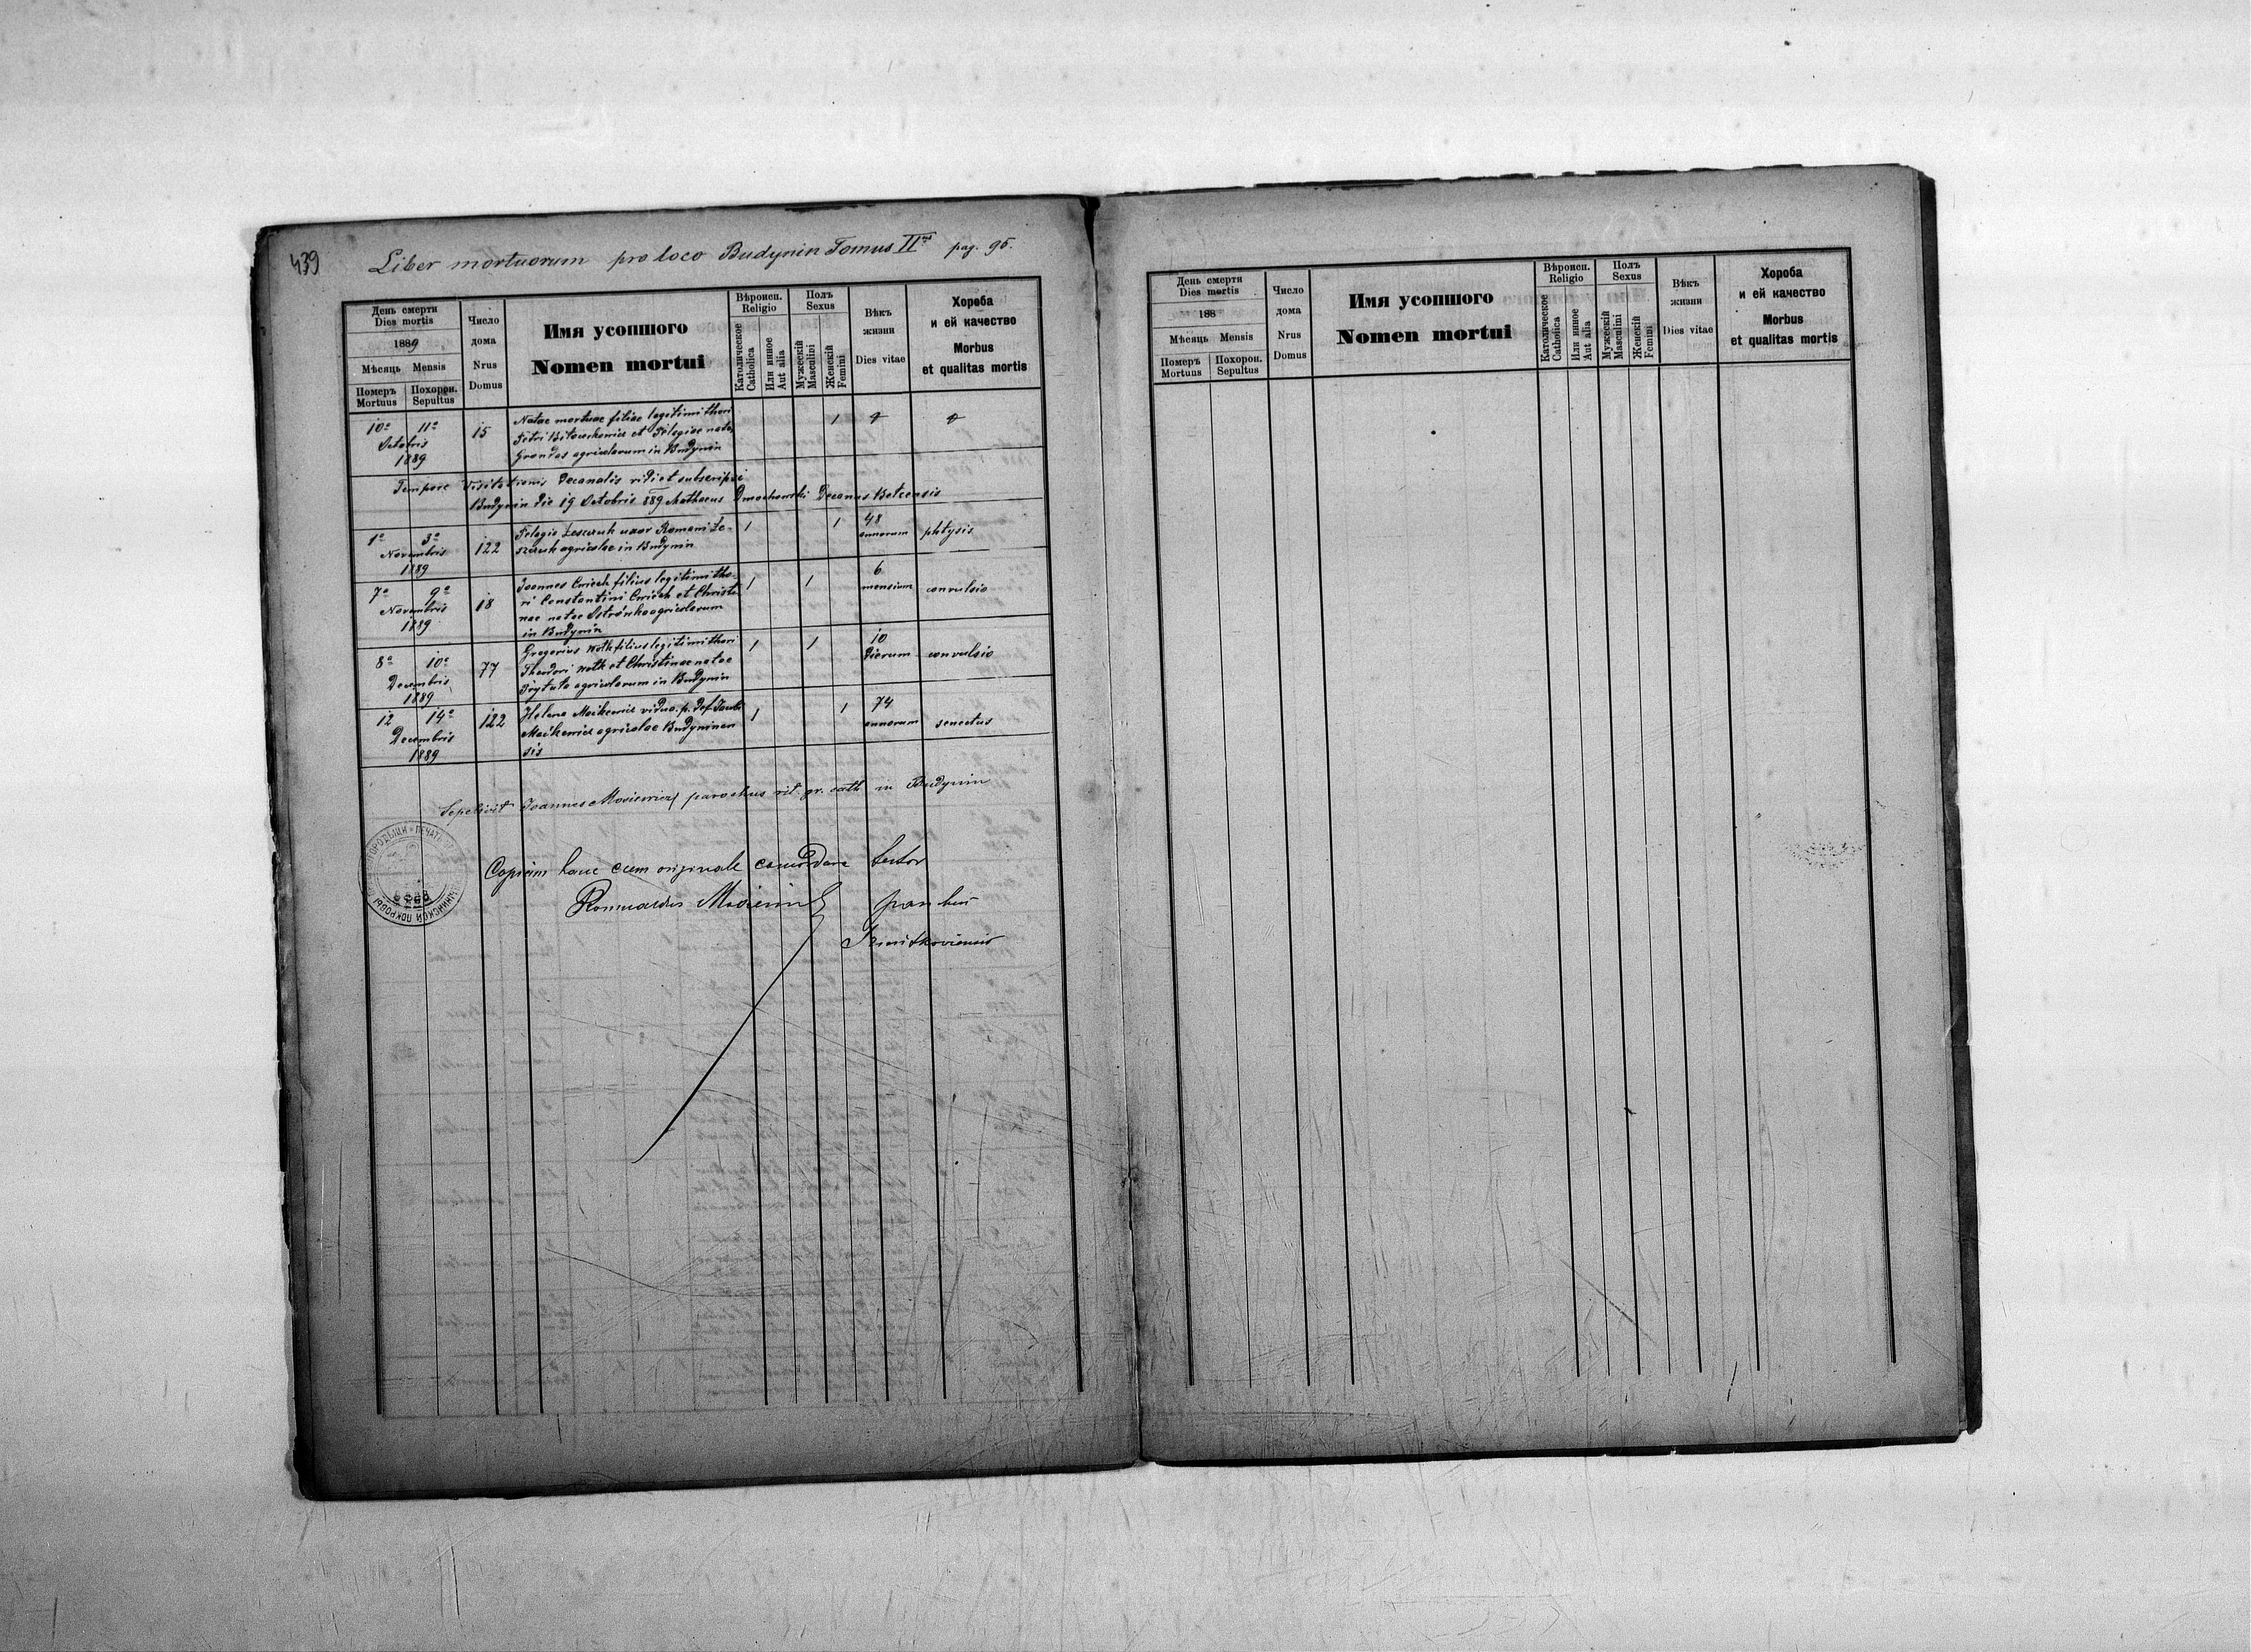 439
Liber mortuorum pro loco Budynin Tomus II pag. 95.
День смерти
Dies mortis
1889
Мѣсяць Mensis
Померъ Похорон.
Mortuus Sepultus
Число
дома
Nrus
Domus
Имя усопшого
Nomen mortui
Вѣроисп.
Religio
Католическое
Catholica
Или инное
Aut alia
Полъ
Sexus
Мужескій
Masculini
Женскій
Femini
Вѣкъ
жизни
Dies vitae
Хороба
и ей качество
Morbus
et qualitas mortis
10a 11a
Octobris
1889
15
Natae mortuae filiae legitimi thori
Petri et Pelagiae natae
agricolarum in Budynin
1
Tempore Visitationis Decanalis vidi et subscripsi
Budynin die 19 Octobris 889 Mathaeus Dmochowski Decanus Belzensis
1a 3a
Novembris
1889
122
Pelagia Leszczuk uxor Romani Le-
szczuk agricolae in Budynin
1
1
48
annorum
phtysis
7a 9a
Novembris
1889
18
Joannes Cwiech filius legitimi tho-
ri Constantini Cwiech et Christi
nae natae agricolarum
in Budynin
1
1
6
mensium
convulsio
8a 10a
Decembris
1889
77
Gregorius Woth filius legitimi thori
Theodori Woth et Christinae natae
agricolarum in Budynin
1
1
10
dierum
convulsio
12 14a
Decembris
1889
122
Helena vidua p. def. Jacobi
agricolae Budyninen
sis
1
1
74
annorum
senectus
Sepelivit Joannes Mosiewicz parochus rit. gr. cath in Budynin
Copiam hanc cum originale concordare testor
Romualdus parochus
День смерти
Dies mortis
188
Мѣсяць Mensis
Померъ Похорон.
Mortuus Sepultus
Число
дома
Nrus
Domus
Имя усопшого
Nomen mortui
Вѣроисп.
Religio
Католическое
Catholica
Или инное
Aut alia
Полъ
Sexus
Мужескій
Masculini
Женскій
Femini
Вѣкъ
жизни
Dies vitae
Хороба
и ей качество
Morbus
et qualitas mortis